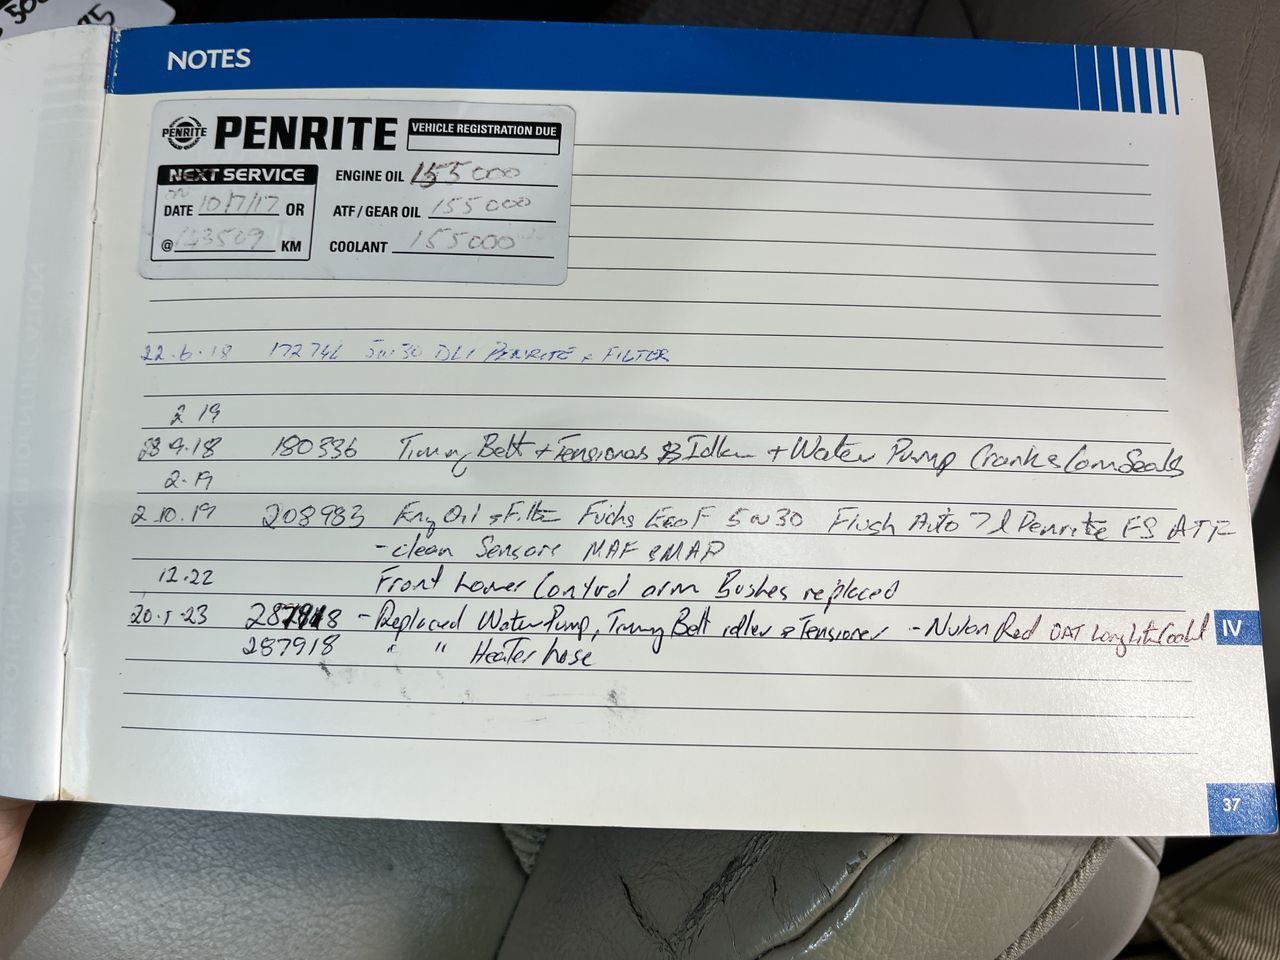 NOTES
PENRITE
PENRITE
VEHICLE REGISTRATION DUE
NEXT SERVICE
DATE 10/7/17 OR
@ 143509 KM
ENGINE OIL 155000
ATF / GEAR OIL 155000
COOLANT 155000
22.6.18 5W30 PENRITE + FILTER
2 19
9.18 180336 Timing Belt + Tensioners & Idler + Water Pump Crank & Cam Seals
2.19
2.10.19 208983 Eng Oil + Filter Fuchs 5W30 Flush Auto 7l Penrite FS ATF
- clean Sensors MAF & MAP
12.22 Front Lower Control arm Bushes replaced
20.5.23 - Replaced Water Pump, Timing Belt idler & Tensioner - Nulon Red OAT Long Life Coolant
287918 " " Heater hose
IV
37